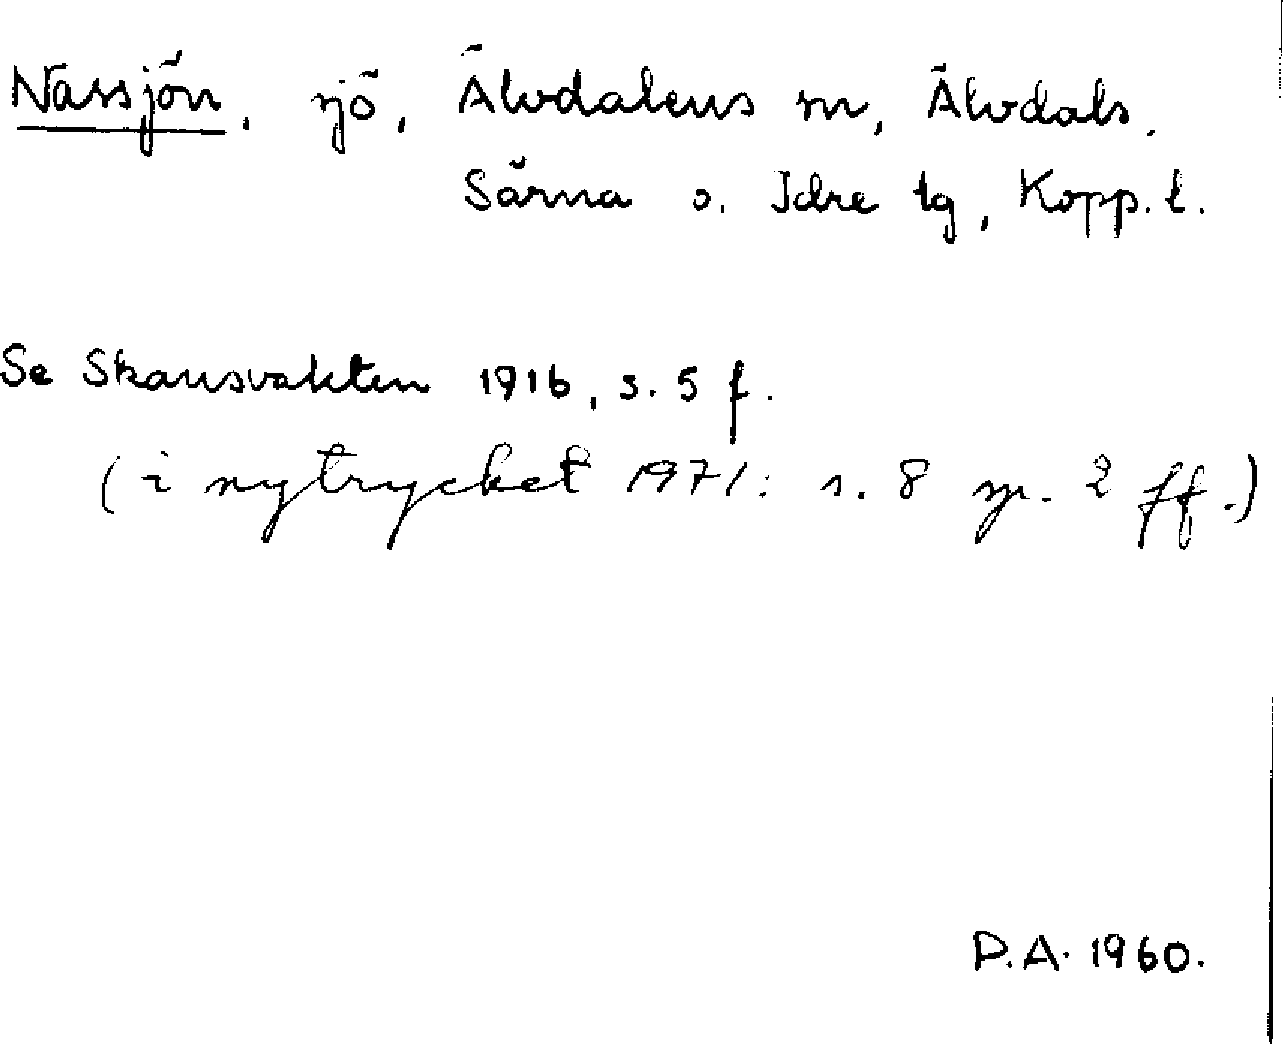 Nässjön, sjö, Älvdalens sn, Älvdals,
Särna o. Idre tg, Kopp. l.
Se Skansvakten 1916, s. 5 f.
(i nytrycket 1971: s. 8 sp. 2 ff.)
P.A. 1960.